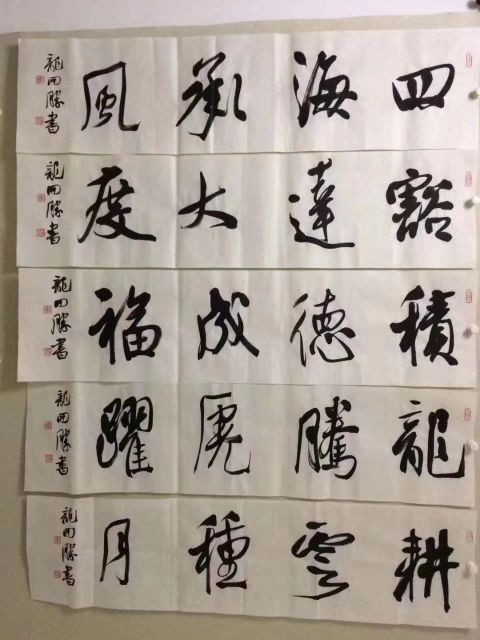 四海承風 龍開勝書
豁達大度 龍開勝書
積德成福 龍開勝書
龍騰虎躍 龍開勝書
耕雲種月 龍開勝書